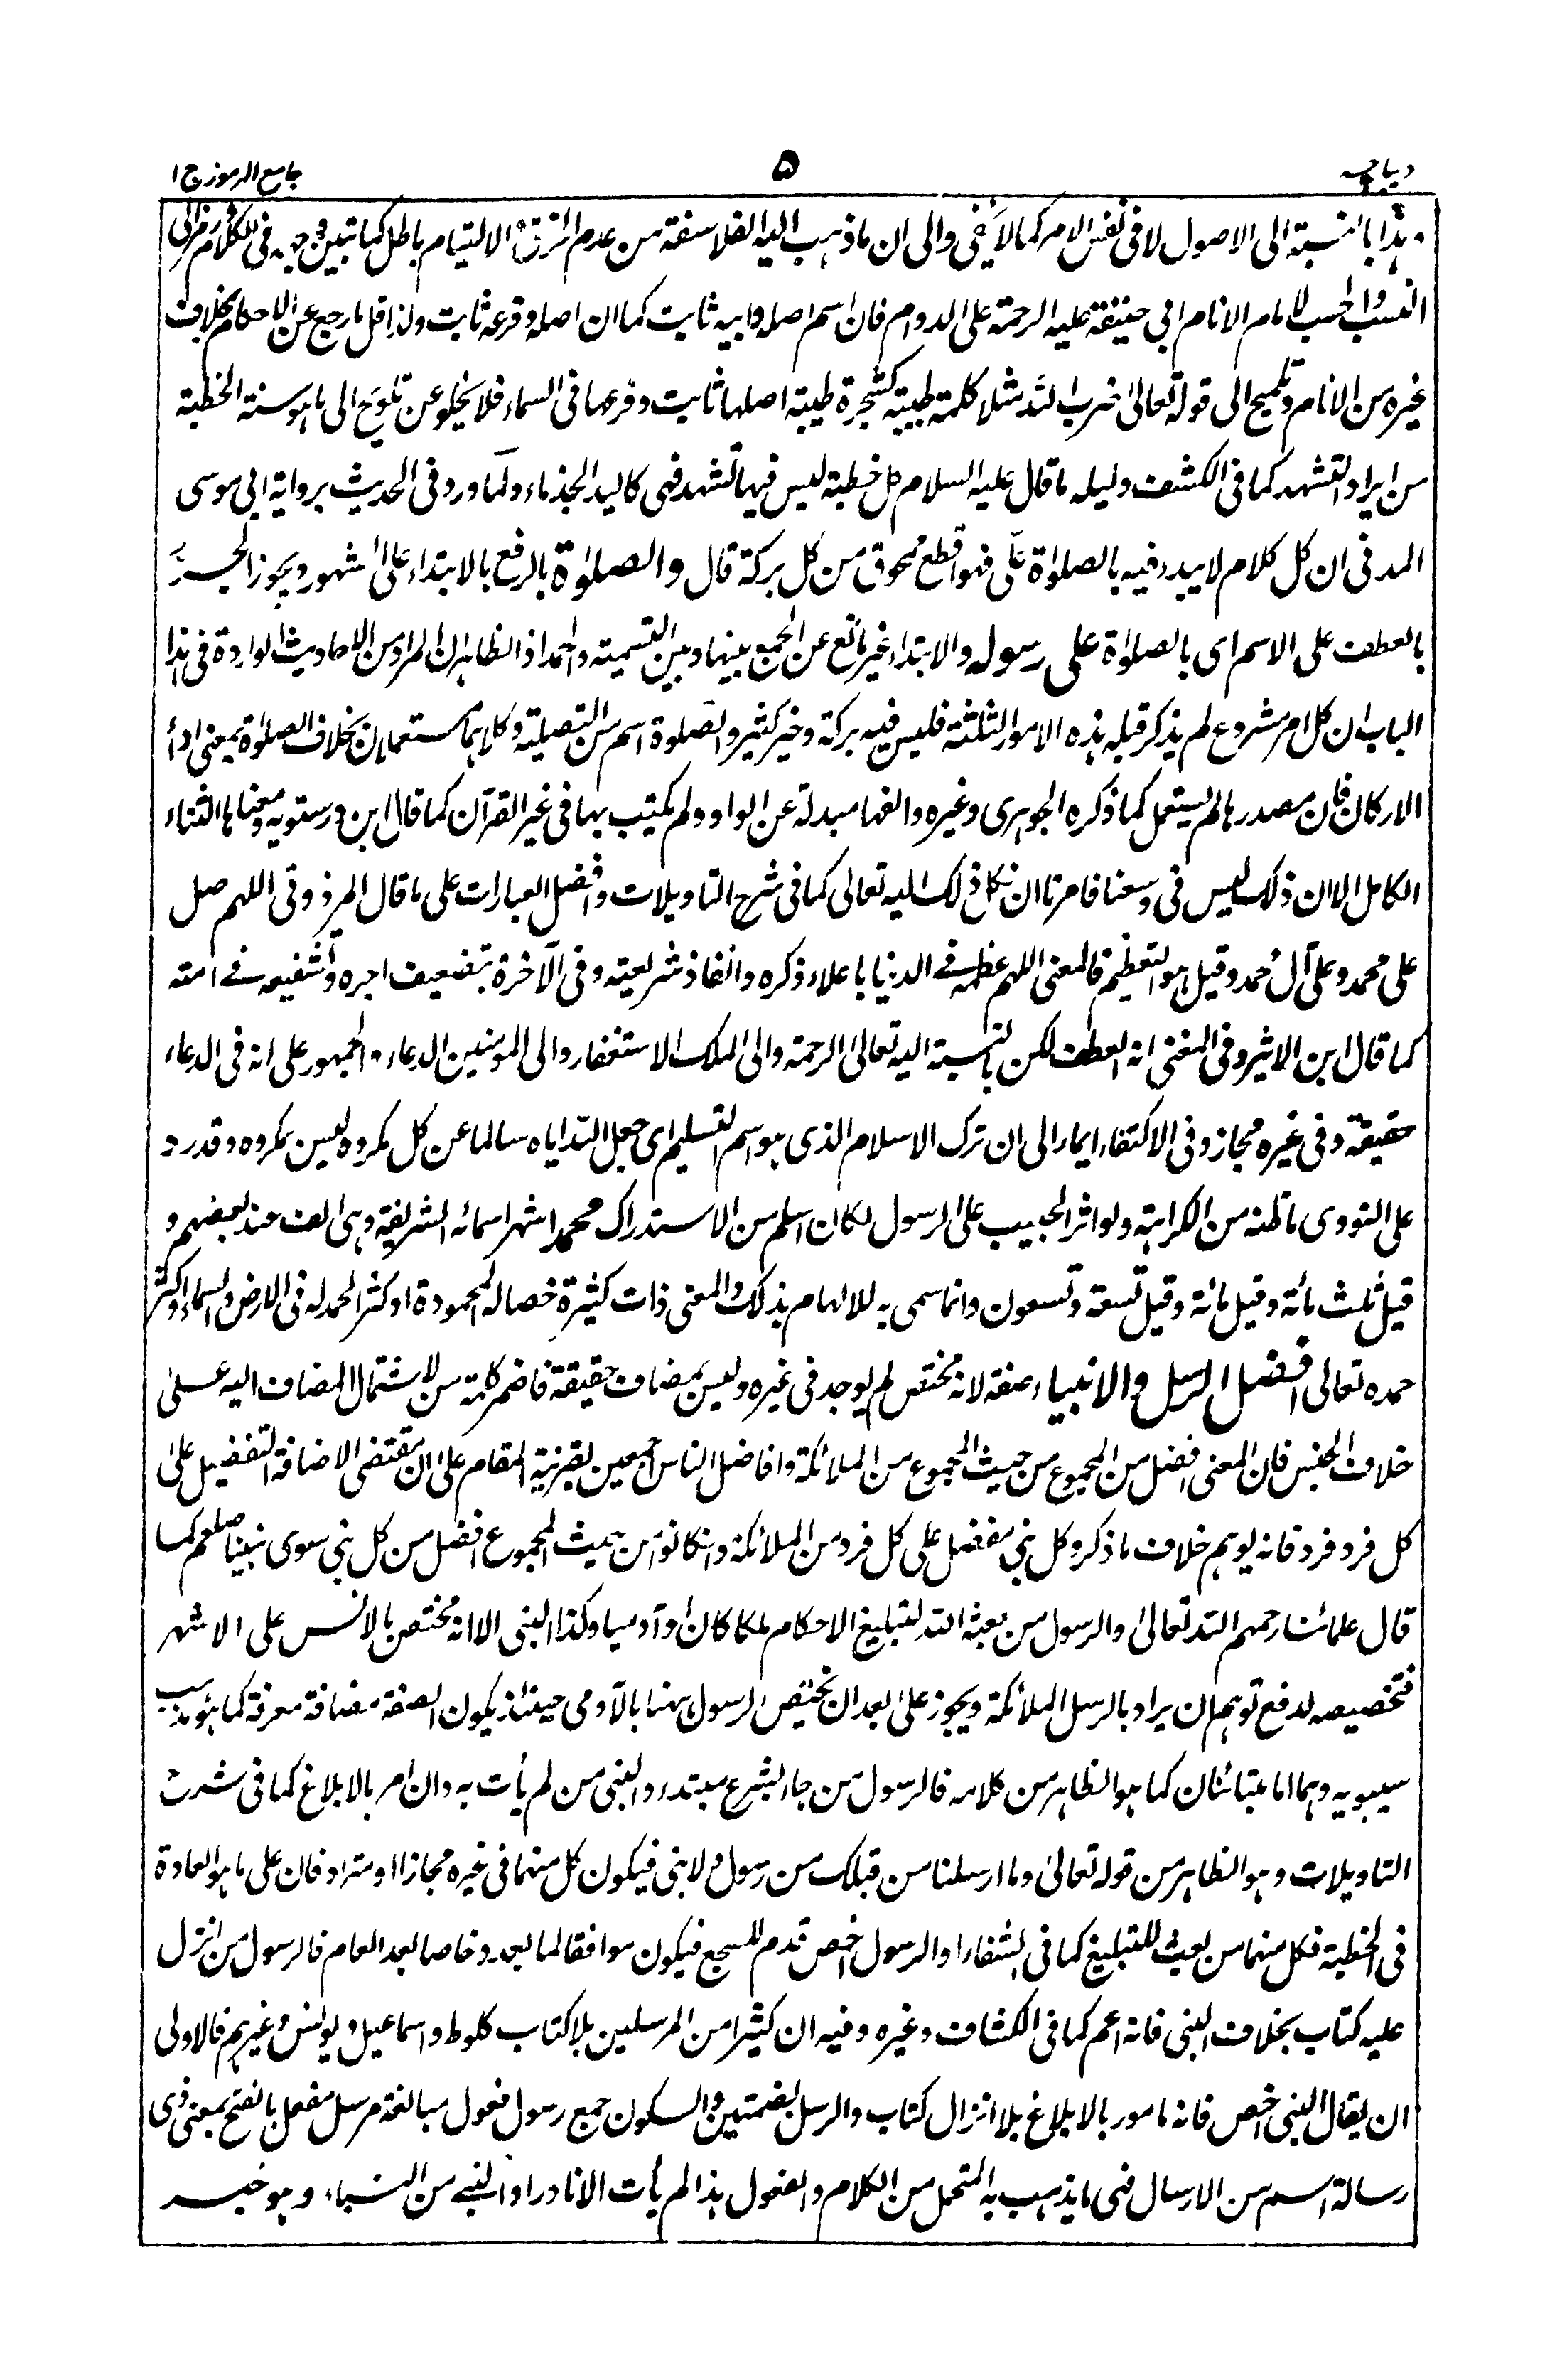 دیباچہ
۵
جامع الرموز ج ۱
وہذا بالنسبۃ الی الاصول لا فی نفس الامر کما لا یخفی والی ان ما ذہب الیہ الفلاسفۃ من عدم الخرق والالتیام باطل کما تبین وجہہ فی الکلام ثم رمز الی
انتساب احسب الامام الانام ابی حنیفۃ علیہ الرحمۃ علی الدوام فان اسم اصلہ وابیہ ثابت کما ان اصلہ وفرعہ ثابت ولذا قل ما رجع عن الاحکام بخلاف
غیرہ من الانام وتلمیح الی قولہ تعالیٰ ضرب اللہ مثلا کلمۃ طیبۃ کشجرۃ طیبۃ اصلہا ثابت وفرعہا فی السماء فلا یخلو عن تلویح الی ما ہو سنۃ الخطبۃ
من ایراد التشہد کما فی الکشف ودلیلہ ما قال علیہ السلام کل خطبۃ لیس فیہا تشہد فہی کالید الجذماء ولما ورد فی الحدیث بروایۃ ابی موسی
المدنی ان کل کلام لا یبدء فیہ بالصلوٰۃ علیّ فہو اقطع ممحوق من کل برکۃ قال والصلوٰۃ بالرفع بالابتداء علی المشہور ویجوز الجر
بالعطف علی الاسم ای بالصلوٰۃ علی رسولہ والابتداء غیر مانع عن الجمع بینہا وبین التسمیۃ والحمد اذ الظاہر ان المراد من الاحادیث الواردۃ فی ہذا
الباب ان کل امر مشروع لم یذکر قبلہ ہذہ الامور الثلثۃ فلیس فیہ برکۃ وخیر کثیر والصلوۃ اسم من التصلیۃ وکلاہما مستعملان بخلاف الصلوٰۃ بمعنی اداء
الارکان فان مصدرہا لم یستعمل کما ذکرہ الجوہری وغیرہ والفہا مبدلۃ عن الواو ولم یکتب بہا فی غیر القرآن کما قال ابن درستویہ ومعناہا الثناء
الکامل الا ان ذلک لیس فی وسعنا فامرنا ان نکل ذلک الیہ تعالی کما فی شرح التاویلات وافضل العبارات علی ما قال المرزوقی اللہم صل
علی محمد وعلی آل محمد وقیل ہو التعظیم فالمعنی اللہم عظمہ فے الدنیا باعلاء ذکرہ وانفاذ شریعتہ وفی الآخرۃ بتضعیف اجرہ وتشفیعہ فے امتہ
کما قال ابن الاثیر وفی المغنی انہ العطف لکن بالنسبۃ الیہ تعالیٰ الرحمۃ والی الملک الاستغفار والی المؤمنین الدعاء والجمہور علی انہ فی الدعاء
حقیقۃ وفی غیرہ مجاز وفی الاکتفاء ایماء الی ان ترک الاسلام الذی ہو اسم التسلیم ای جعل اللہ ایاہ سالما عن کل مکروہ لیس بمکروہ وقد رد
علی النووی ما ظنہ من الکراہۃ ولو اثر الحبیب علی الرسول لکان اسلم من الاستدراک محمد اشہر اسمائہ الشریفۃ وہی الف عند بعضہم و
قیل ثلث مائۃ وقیل مائۃ وقیل تسعۃ وتسعون وانما سمی بہ للالہام بذلک والمعنی ذات کثیرۃ خصالہ المحمودۃ او کثر الحمد لہ فی الارض والسماء او اکثر
حمدہ تعالی افضل الرسل والانبیاء صفۃ لانہ مختص لم یوجد فی غیرہ ولیس بمضاف حقیقۃ فاضمر کلمۃ من لاشتمال المضاف الیہ علیٰ
خلاف الجنس فان المعنی افضل من المجموع من حیث المجموع من الملائکۃ وافاضل الناس اجمعین بقرینۃ المقام علی ان مقتضی الاضافۃ التفضیل علیٰ
کل فرد فرد فانہ یوہم خلاف ما ذکر وکل نبی مفضل علی کل فرد من الملائکۃ وان کانوا من حیث المجموع افضل من کل نبی سوی نبینا صلعم کما
قال علمائنا رحمہم اللہ تعالیٰ والرسول من بعثہ اللہ لتبلیغ الاحکام ملکا کان او آدمیا وکذا النبی الا انہ مختص بالانس علی الاشہر
فتخصیصہ لدفع توہم ان یراد بالرسل الملائکۃ ویجوز علی بعد ان یختص الرسول ہہنا بالآدمی حینئذ یکون الصفۃ مضافۃ معرفۃ کما ہو مذہب
سیبویہ وہما اما متبائنان کما ہو الظاہر من کلامہ فالرسول من جاء بشرع مبتدء والنبی من لم یأت بہ وان امر بالابلاغ کما فی شرح
التاویلات وہو الظاہر من قولہ تعالیٰ وما ارسلنا من قبلک من رسول ولا نبی فیکون کل منہما فی غیرہ مجازا او مترادفان علی ما ہو العادۃ
فی الخطبۃ فکل منہما من بعث للتبلیغ کما فی الشفاء او الرسول اخص قدم للسجع فیکون موافقا لما بعد وخاصا بعد العام فالرسول من انزل
علیہ کتاب بخلاف النبی فانہ اعم کما فی الکشاف وغیرہ وفیہ ان کثیرا من المرسلین بلا کتاب کلوط واسماعیل ویونس وغیرہم فالاولی
ان یقال النبی اخص فانہ مامور بالابلاغ بلا انزال کتاب والرسل بضمتین والسکون جمع رسول فعول مبالغۃ مرسل مفعل بالفتح بمعنی ذی
رسالۃ اسم من الارسال فہی ما یذہب بہ المتحمل من الکلام والفعول ہذا لم یأت الا نادرا والنبے من النباء وہو خبر